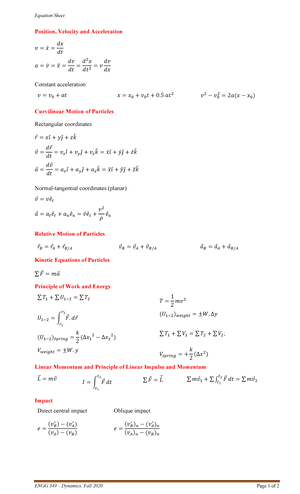 Equation Sheet
Position, Velocity and Acceleration
v = ẋ = dx/dt
a = v̇ = ẍ = dv/dt = d²x/dt² = v dv/dx
Constant acceleration:
v = v₀ + at x = x₀ + v₀t + 0.5 at² v² − v₀² = 2a(x − x₀)
Curvilinear Motion of Particles
Rectangular coordinates
r⃗ = xî + yĵ + zk̂
v⃗ = dr⃗/dt = vₓî + vᵧĵ + v_z k̂ = ẋî + ẏĵ + żk̂
a⃗ = dv⃗/dt = aₓî + aᵧĵ + a_z k̂ = ẍî + ÿĵ + z̈k̂
Normal-tangential coordinates (planar)
v⃗ = vêₜ
a⃗ = aₜêₜ + aₙêₙ = v̇êₜ + v²/ρ êₙ
Relative Motion of Particles
r⃗_B = r⃗_A + r⃗_B/A v⃗_B = v⃗_A + v⃗_B/A a⃗_B = a⃗_A + a⃗_B/A
Kinetic Equations of Particles
∑F⃗ = ma⃗
Principle of Work and Energy
∑T₁ + ∑U₁₋₂ = ∑T₂
T = 1/2 mv²
U₁₋₂ = ∫F⃗.dr⃗
(U₁₋₂)weight = ±W.Δy
(U₁₋₂)Spring = k/2 (Δx₁² − Δx₂²)
∑T₁ + ∑V₁ = ∑T₂ + ∑V₂.
V_weight = ±W.y
V_spring = + k/2 (Δx²)
Linear Momentum and Principle of Linear Impulse and Momentum
L⃗ = mv⃗ I = ∫F⃗ dt ∑F⃗ = L⃗̇ ∑mv⃗₁ + ∑∫F⃗ dt = ∑mv⃗₂
Impact
Direct central impact Oblique impact
e = (v′_B) − (v′_A) / (v_A) − (v_B) e = (v′_B)ₙ − (v′_A)ₙ / (v_A)ₙ − (v_B)ₙ
ENGG 349 – Dynamics, Fall 2020 Page 1 of 2